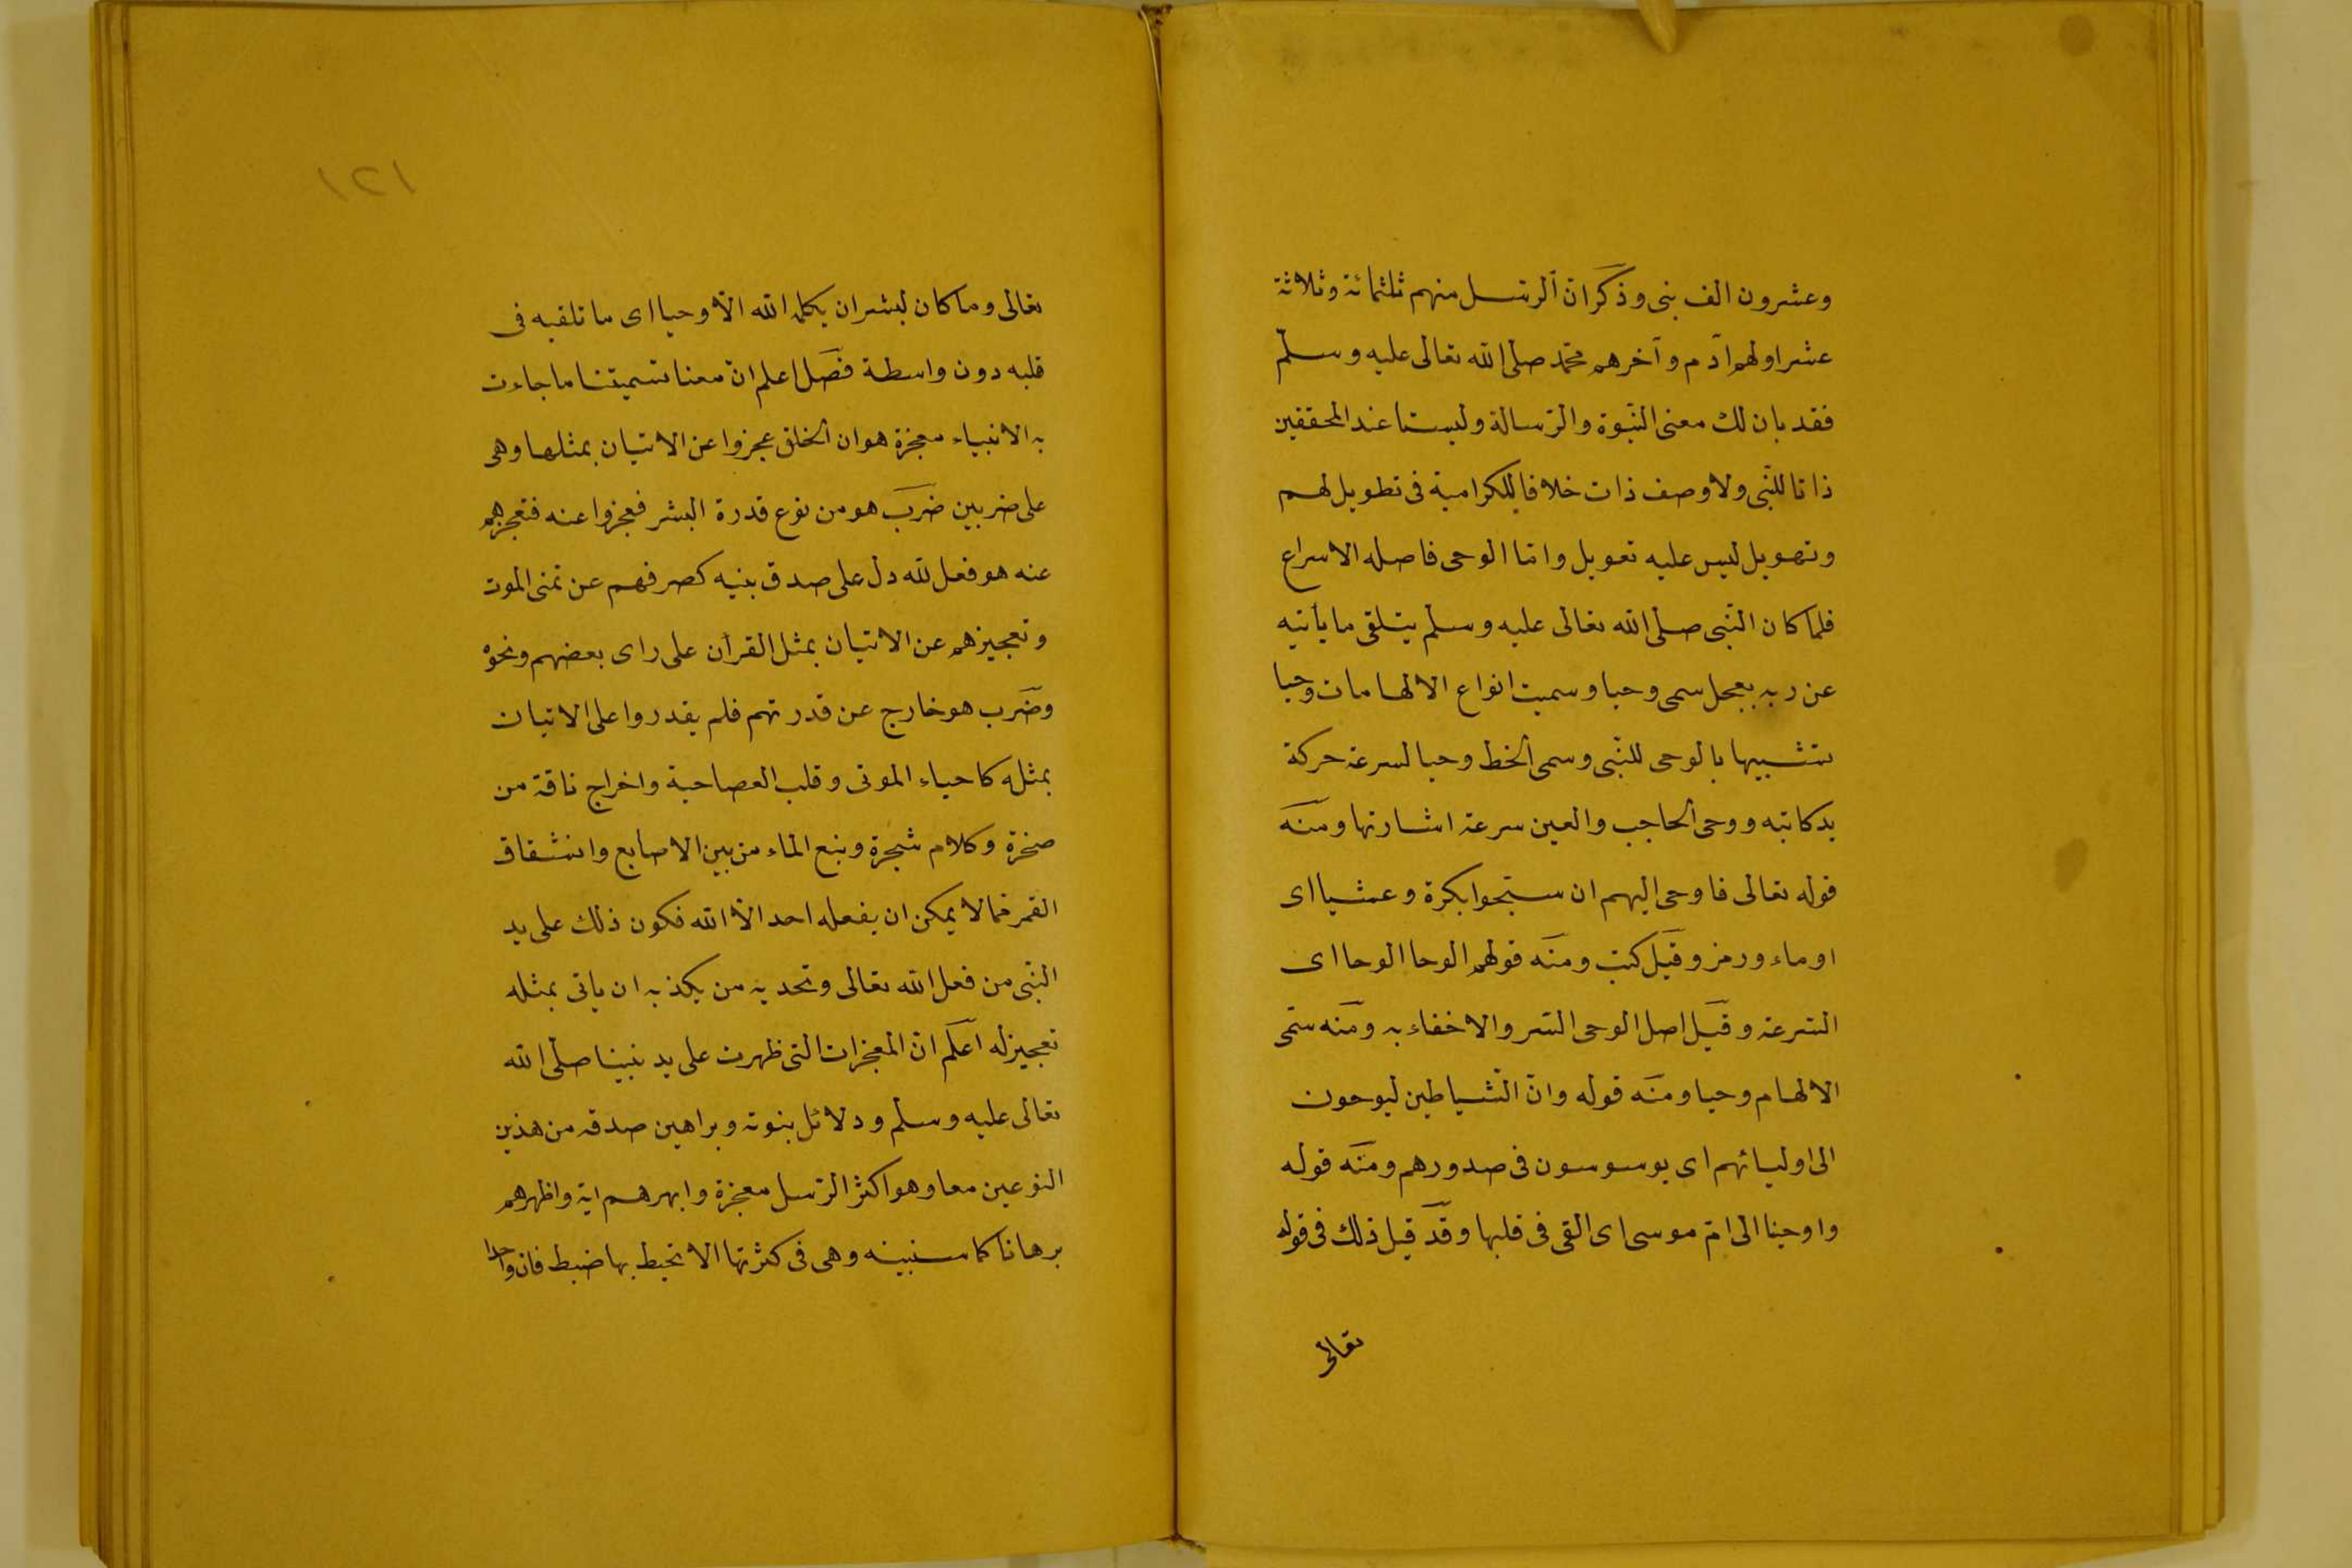 وعشرون الف نبى وذكر انّ الرسل منهم ثلثمائة وثلاثة
عشر اولهم آدم وآخرهم محمّد صلى الله تعالى عليه وسلّم
فقد بان لك معنى النّبوة والرّسالة وليستا عند المحققين
ذاتا للنّبى ولا وصف ذات خلافا للكرامية فى تطويل لهم
وتهويل ليس عليه تعويل وامّا الوحى فاصله الاسراع
فلما كان النّبى صلى الله تعالى عليه وسلم يتلقى ما يأتيه
عن ربه بعجل سمى وحيا وسميت انواع الالهامات وحيا
تشبيها بالوحى للنّبى وسمى الخط وحيا لسرعة حركة
يد كاتبه ووحى الحاجب والعين سرعة اشارتها ومنه
قوله تعالى فاوحى اليهم ان سبّحوا بكرة وعشيا اى
اوماء ورمز وقيل كتب ومنه قولهم الوحا الوحا اى
السّرعة وقيل اصل الوحى السّر والاخفاء به ومنه سمّى
الالهام وحيا ومنه قوله وانّ الشّياطين ليوحون
الى اوليائهم اى يوسوسون فى صدورهم ومنه قوله
واوحينا الى امّ موسى اى القى فى قلبها وقد قيل ذلك فى قوله
تعالى
١٢١
تعالى وما كان لبشر ان يكلمه الله الّا وحيا اى ما تلقيه فى
قلبه دون واسطة فصل اعلم انّ معنا تسميتنا ما جاءت
به الانبياء معجزة هو ان الخلق عجزوا عن الاتيان بمثلها وهى
على ضربين ضرب هو من نوع قدرة البشر فعجزوا عنه فتعجيزهم
عنه هو فعل لله دل على صدق نبيه كصرفهم عن تمنى الموت
وتعجيزهم عن الاتيان بمثل القرأن على راى بعضهم ونحوه
وضرب هو خارج عن قدرتهم فلم يقدروا على الاتيان
بمثله كاحياء الموتى وقلب العصا حية واخراج ناقة من
صخرة وكلام شجرة ونبع الماء من بين الاصابع وانشقاق
القمر مما لا يمكن ان يفعله احد الّا الله فكون ذلك على يد
النّبى من فعل الله تعالى وتحديه من يكذبه ان ياتى بمثله
تعجيز له اعلم انّ المعجزات التى ظهرت على يد نبينا صلّى الله
تعالى عليه وسلّم ودلائل نبوته وبراهين صدقه من هذين
النوعين معا وهو اكثر الرّسل معجزة وابهرهم اية واظهرهم
برهانا كما سنبينه وهى فى كثرتها لا يحيط بها ضبط فان واحدا